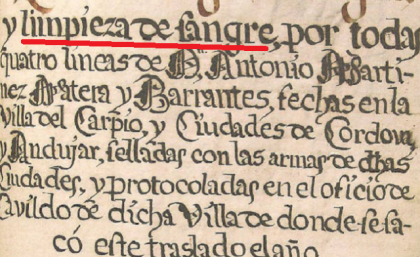 y limpieza de sangre, por todas
quatro lineas de Dn. Antonio Marti-
nez Matera y Barrantes, fechas en la
Villa del Carpio, y Ciudades de Cordova,
y Andujar, selladas con las armas de dhas
Ciudades, y protocoladas en el oficio de
Cavildo de dicha Villa de donde se sa-
có este traslado el año